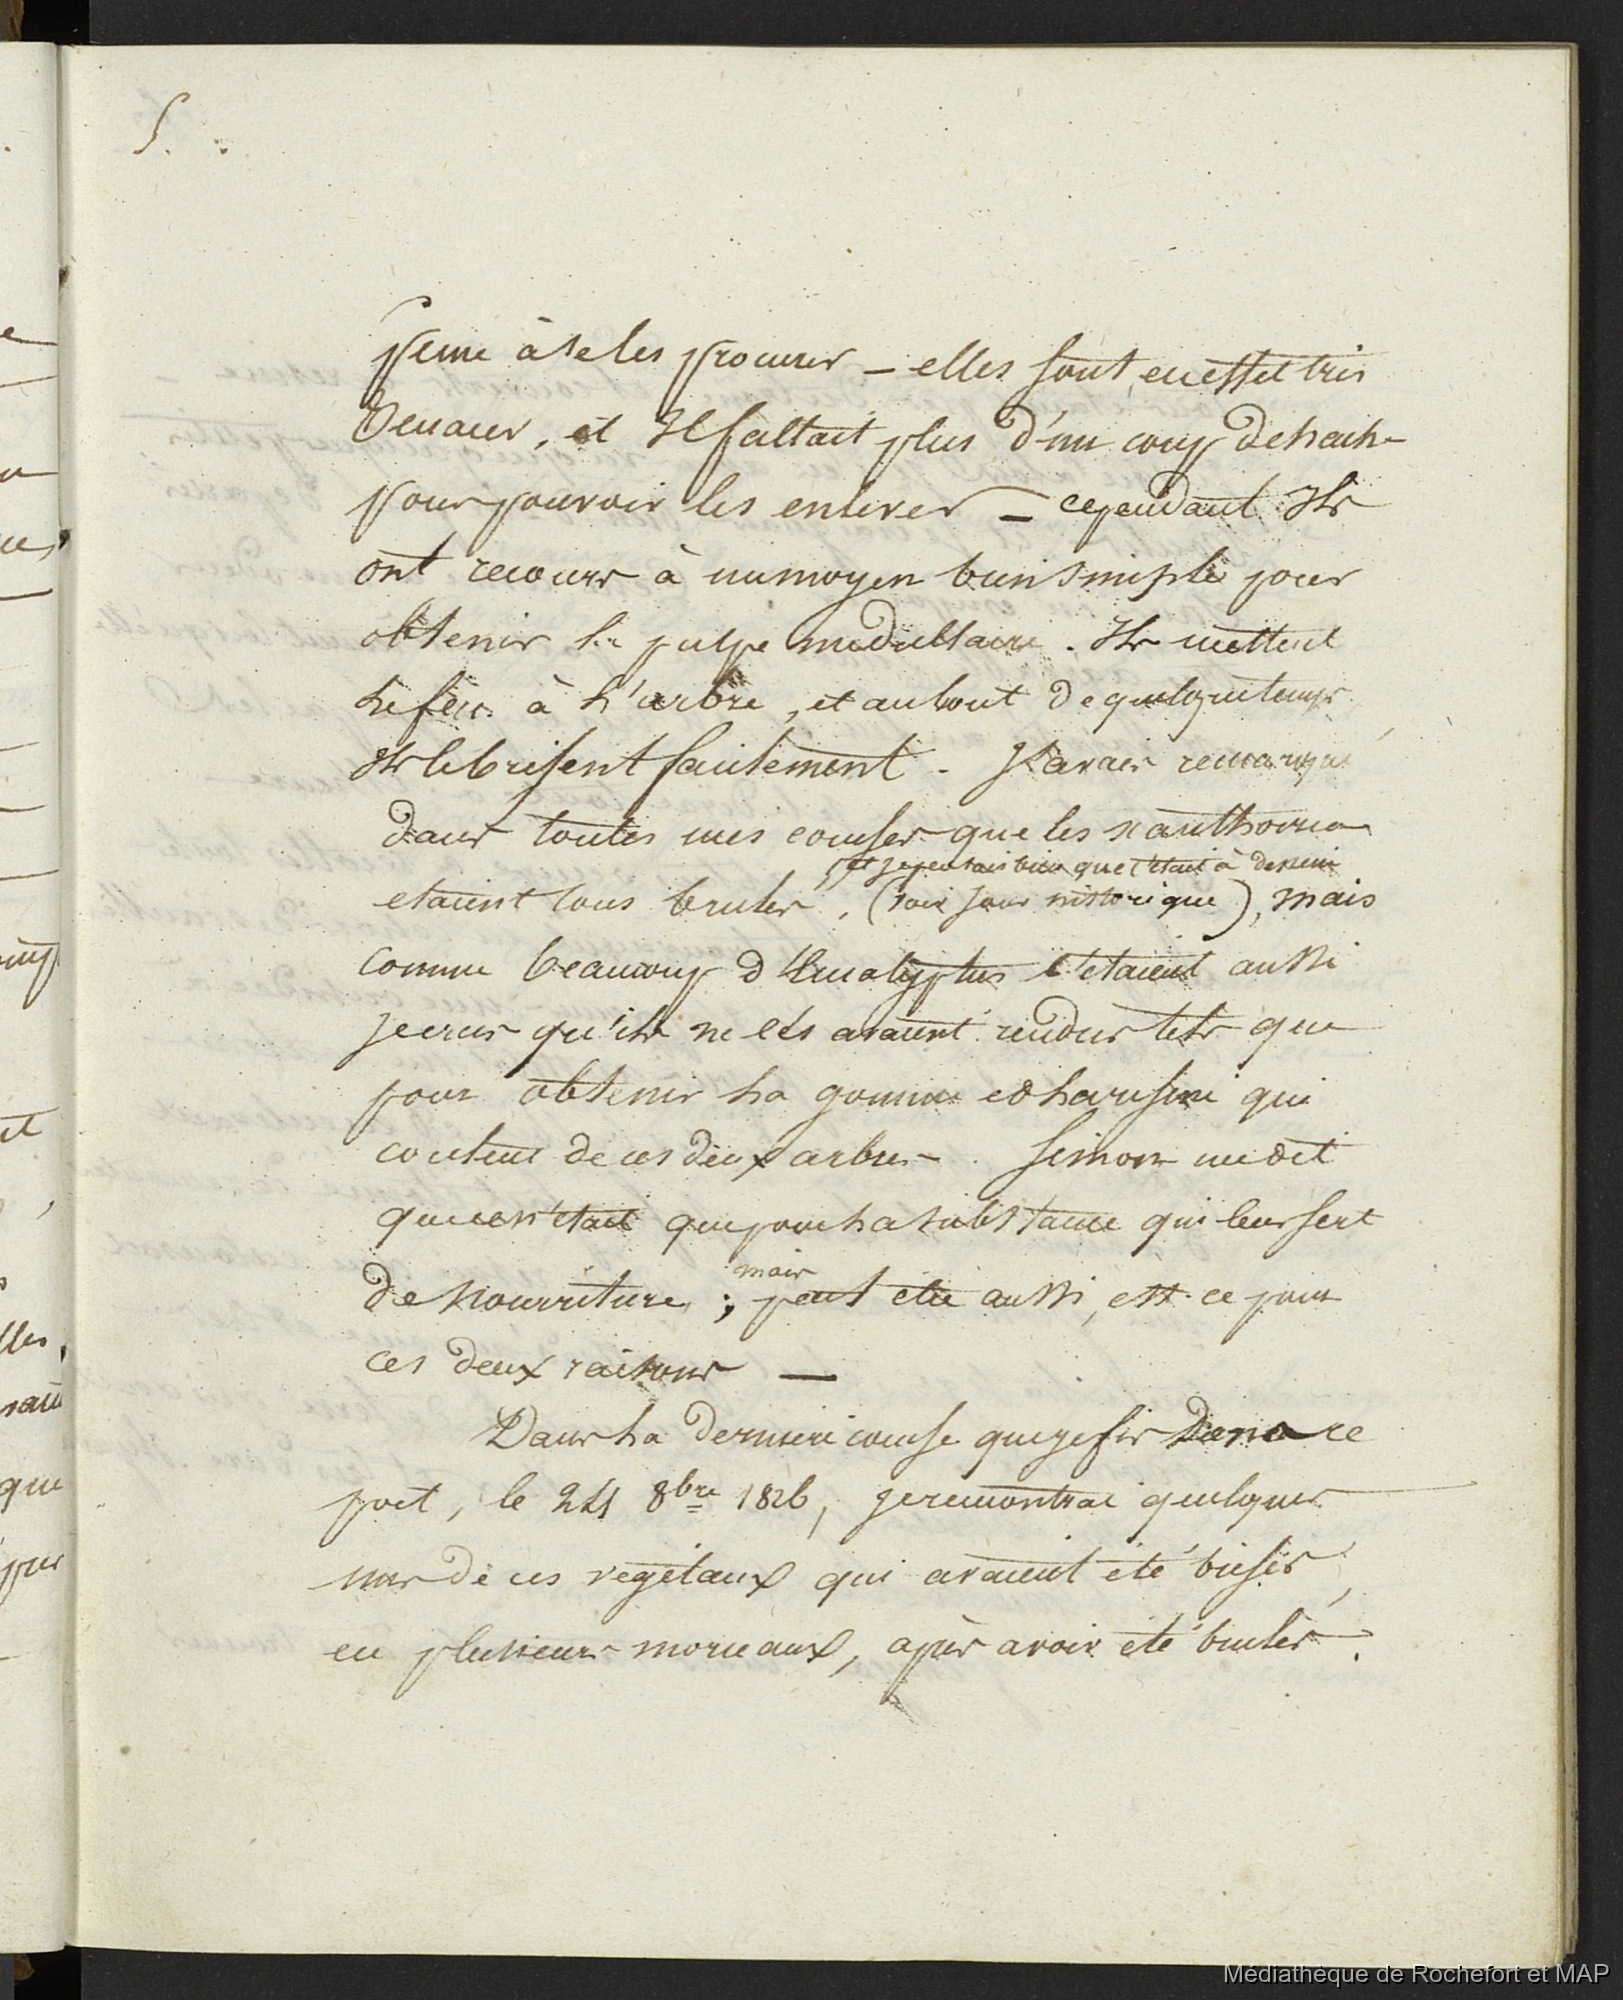 5.
peine à se les procurer – elles sont, en effet très
tenaces, et Il fallait plus d'un coup de hache
pour pouvoir les enlever – cependant Ils
ont recours à un moyen bien simple pour
obtenir la pulpe medullaire. Ils mettent
le feu à l'arbre, et au bout de quelque temps
Ils le brisent facilement. J'avais remarqué
dans toutes mes courses que les xanthorrea
, et je pensais bien que c'était à dessein
etaient tous brulés, (voir jour historique), mais
comme beaucoup d'Eucalyptus l'étaient aussi
je crus qu'ils ne les avaient rendus tels que
pour obtenir la gomme et la resine qui
coulent de ces deux arbres. Simon me dit
que ce n'était que pour la substance qui leur sert
mais
de nourriture; peut être aussi, est-ce pour
ces deux raisons —
Dans la derniere course que je fis dans ce
port, le 24 8bre 1826, je rencontrai quelques
uns de ces vegetaux qui avaient été brisés,
en plusieurs morceaux, après avoir été brulés.
Médiathèque de Rochefort et MAP